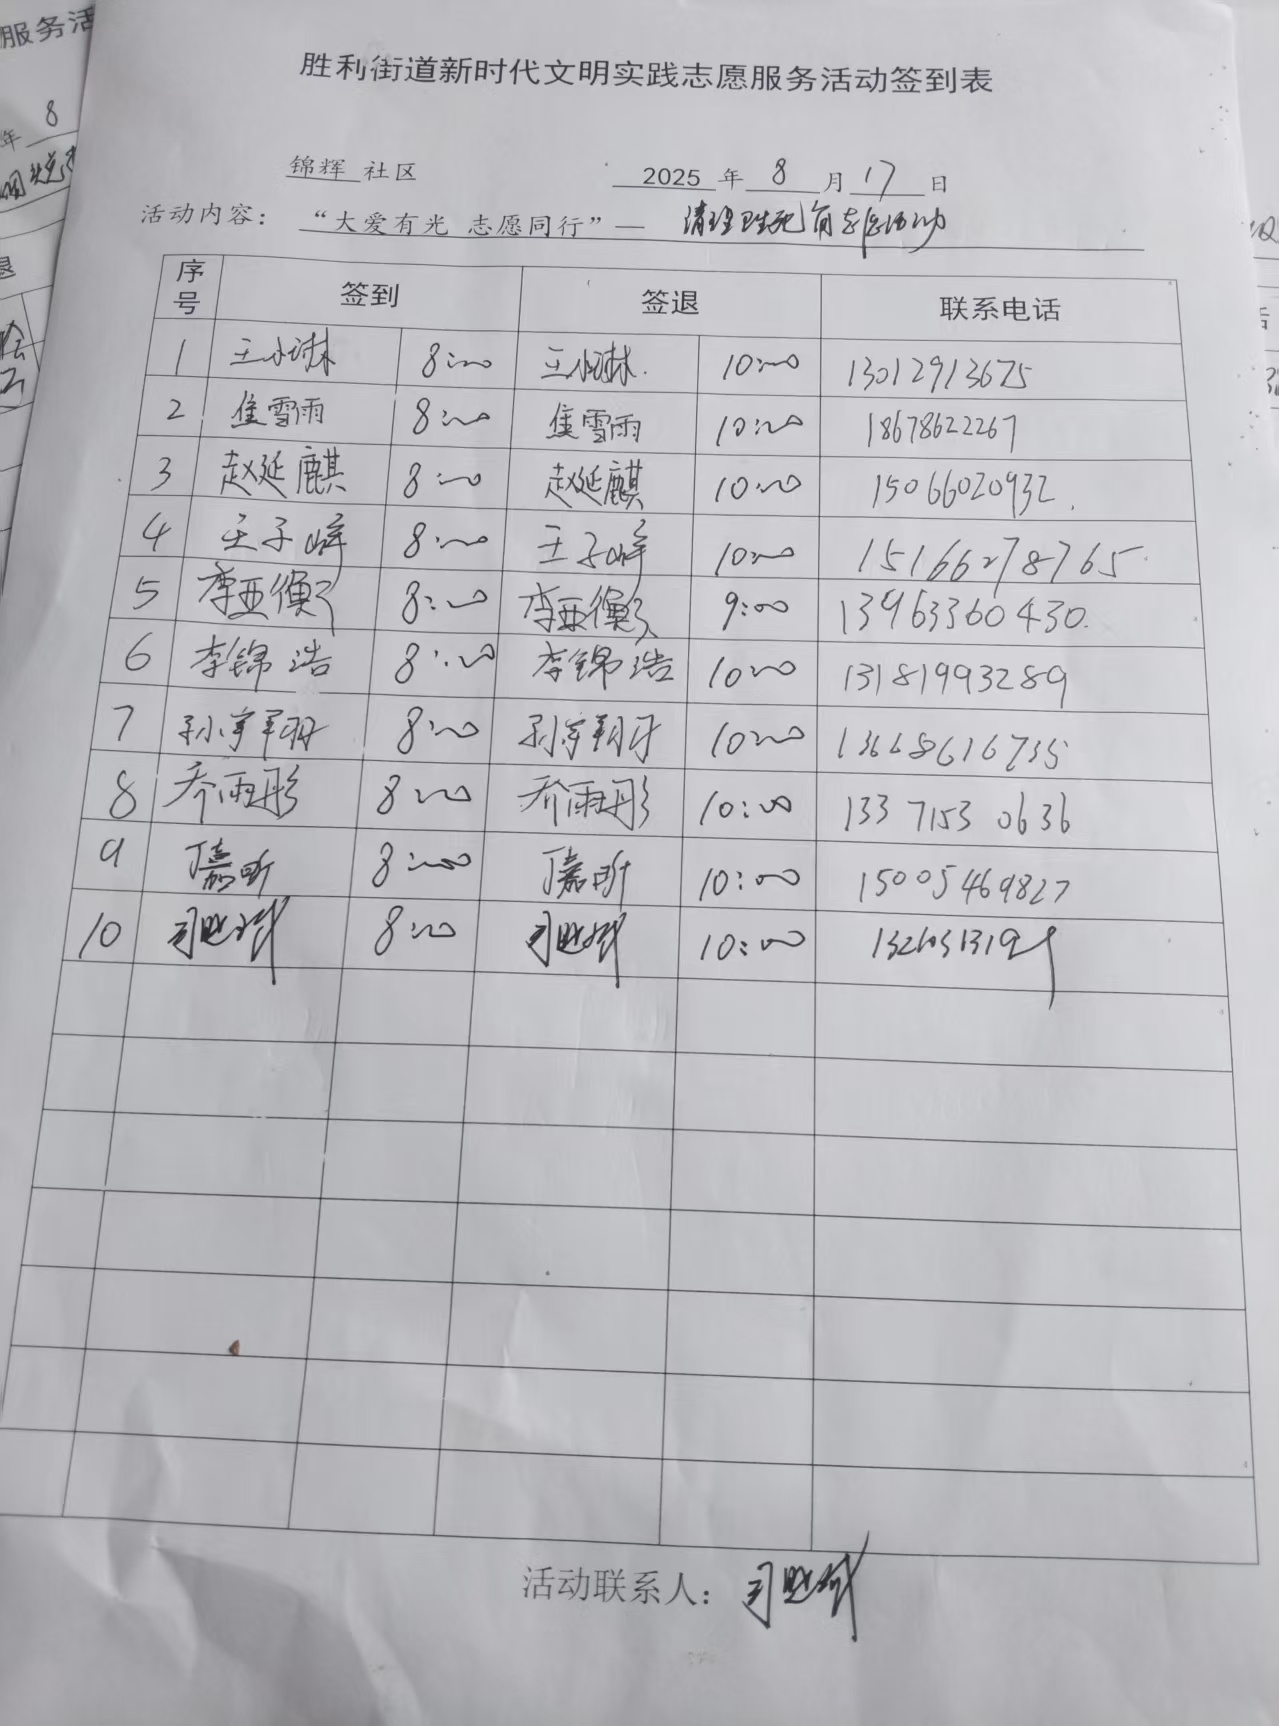 胜利街道新时代文明实践志愿服务活动签到表
锦辉 社区 2025 年 8 月 17 日
活动内容： “大爱有光 志愿同行”— 清理卫生死角志愿活动
序号 签到 签退 联系电话
1 王小琳 8:00 王小琳 10:00 13012913675
2 焦雪雨 8:00 焦雪雨 10:00 18678622267
3 赵延麒 8:00 赵延麒 10:00 15066020932
4 王子峰 8:00 王子峰 10:00 15166278765
5 李亚衡 8:00 李亚衡 9:00 13963360430
6 李锦浩 8:00 李锦浩 10:00 13181993289
7 8:00 10:00 13668616735
8 乔雨彤 8:00 乔雨彤 10:00 13371530636
9 丁嘉昕 8:00 丁嘉昕 10:00 15005469827
10 8:00 10:00
活动联系人：